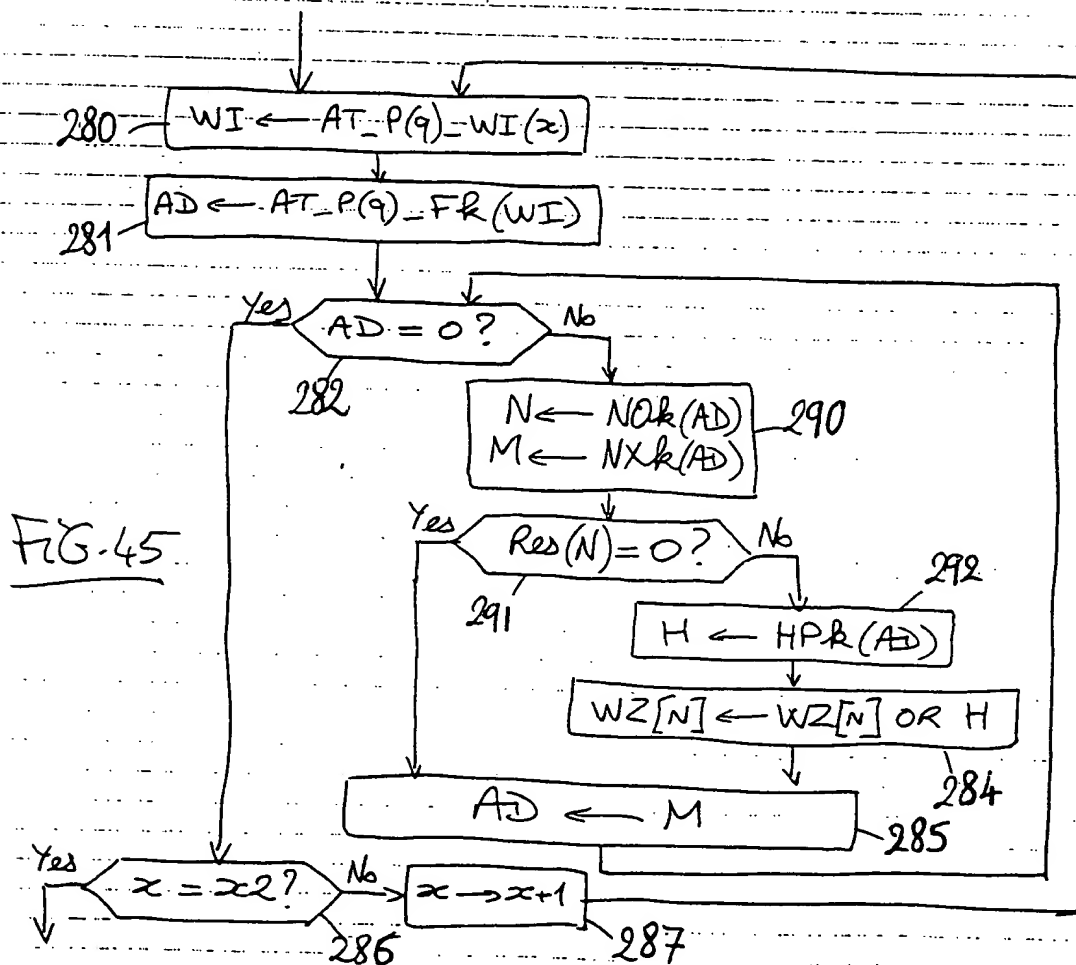 280
WI ← AT_P(q)_WI(x)
AD ← AT_P(q)_Fk(WI)
281
Yes
AD = 0 ?
No
282
N ← NOk(AD)
M ← NXk(AD)
290
FIG. 45
Yes
Res(N) = 0 ?
No
291
292
H ← HPk(AD)
WZ[N] ← WZ[N] OR H
284
AD ← M
285
Yes
x = x2 ?
No
x → x+1
286
287